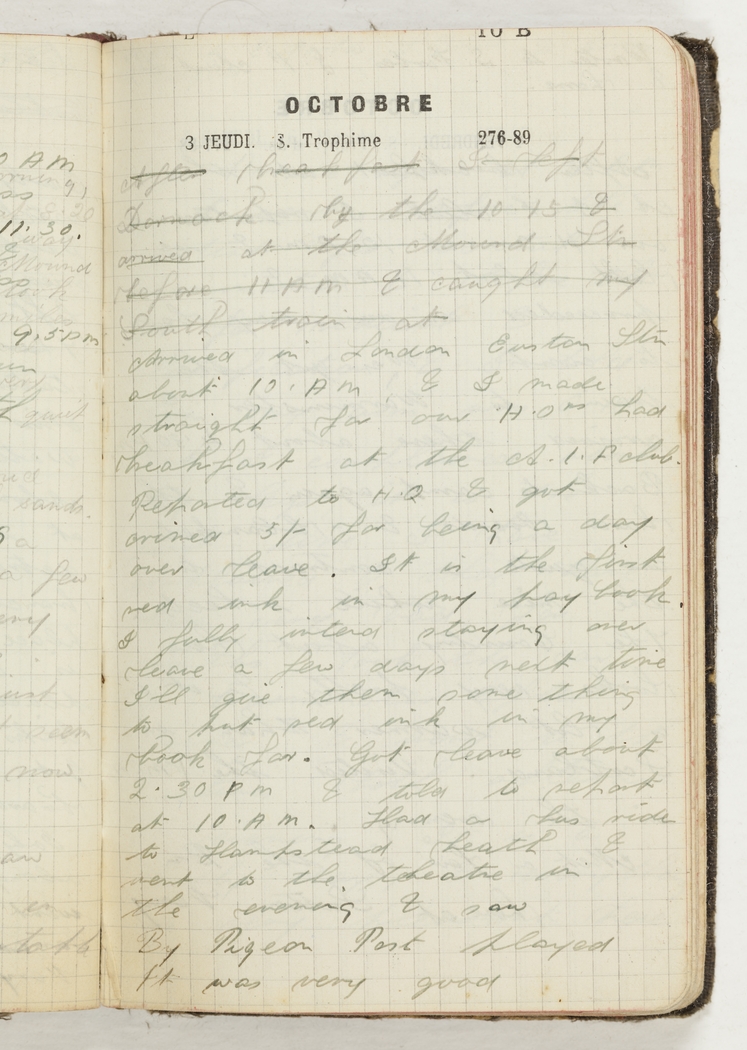 10 B
OCTOBRE
3 JEUDI. S. Trophime 276-89
After breakfast I left
Dornoch by the 10.15 &
arrived at the Mound Stn
before 11 AM & caught my
South train at
Arrived in London Euston Stn
about 10. AM & I made
straight for our H.Qrs had
breakfast at the A.I.F club.
Reported to H.Q & got
crimed 5/- for being a day
over leave. It is the first
red ink in my pay book
I fully intend staying over
leave a few days next time
I'll give them some thing
to put red ink in my
book for. Got leave about
2.30 PM & told to report
at 10.A.M. Had a bus ride
to Hampstead heath &
went to the theatre in
the evening & saw
By Pigeon Post played
It was very good
0 AM
11.30.
Mound
9.5pm
quit
sands.
a
a few
just
seem
now.